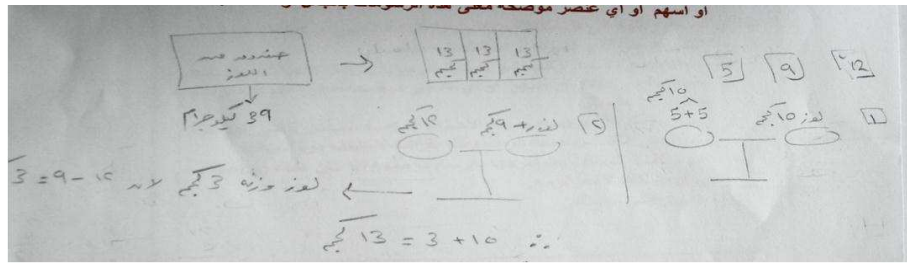 او اسهم او اي عنصر موضحة معنى هذه الرسومات
صندوق من اللوز
39 كيلوجرام
13 كجم 13 كجم 13 كجم
5 9 12
1 لوز 10 كجم
5+5
10 كجم
2 لوز + 9 كجم
12 كجم
لوز وزنه 3 كجم لان 12 - 9 = 3
∴ 10 + 3 = 13 كجم